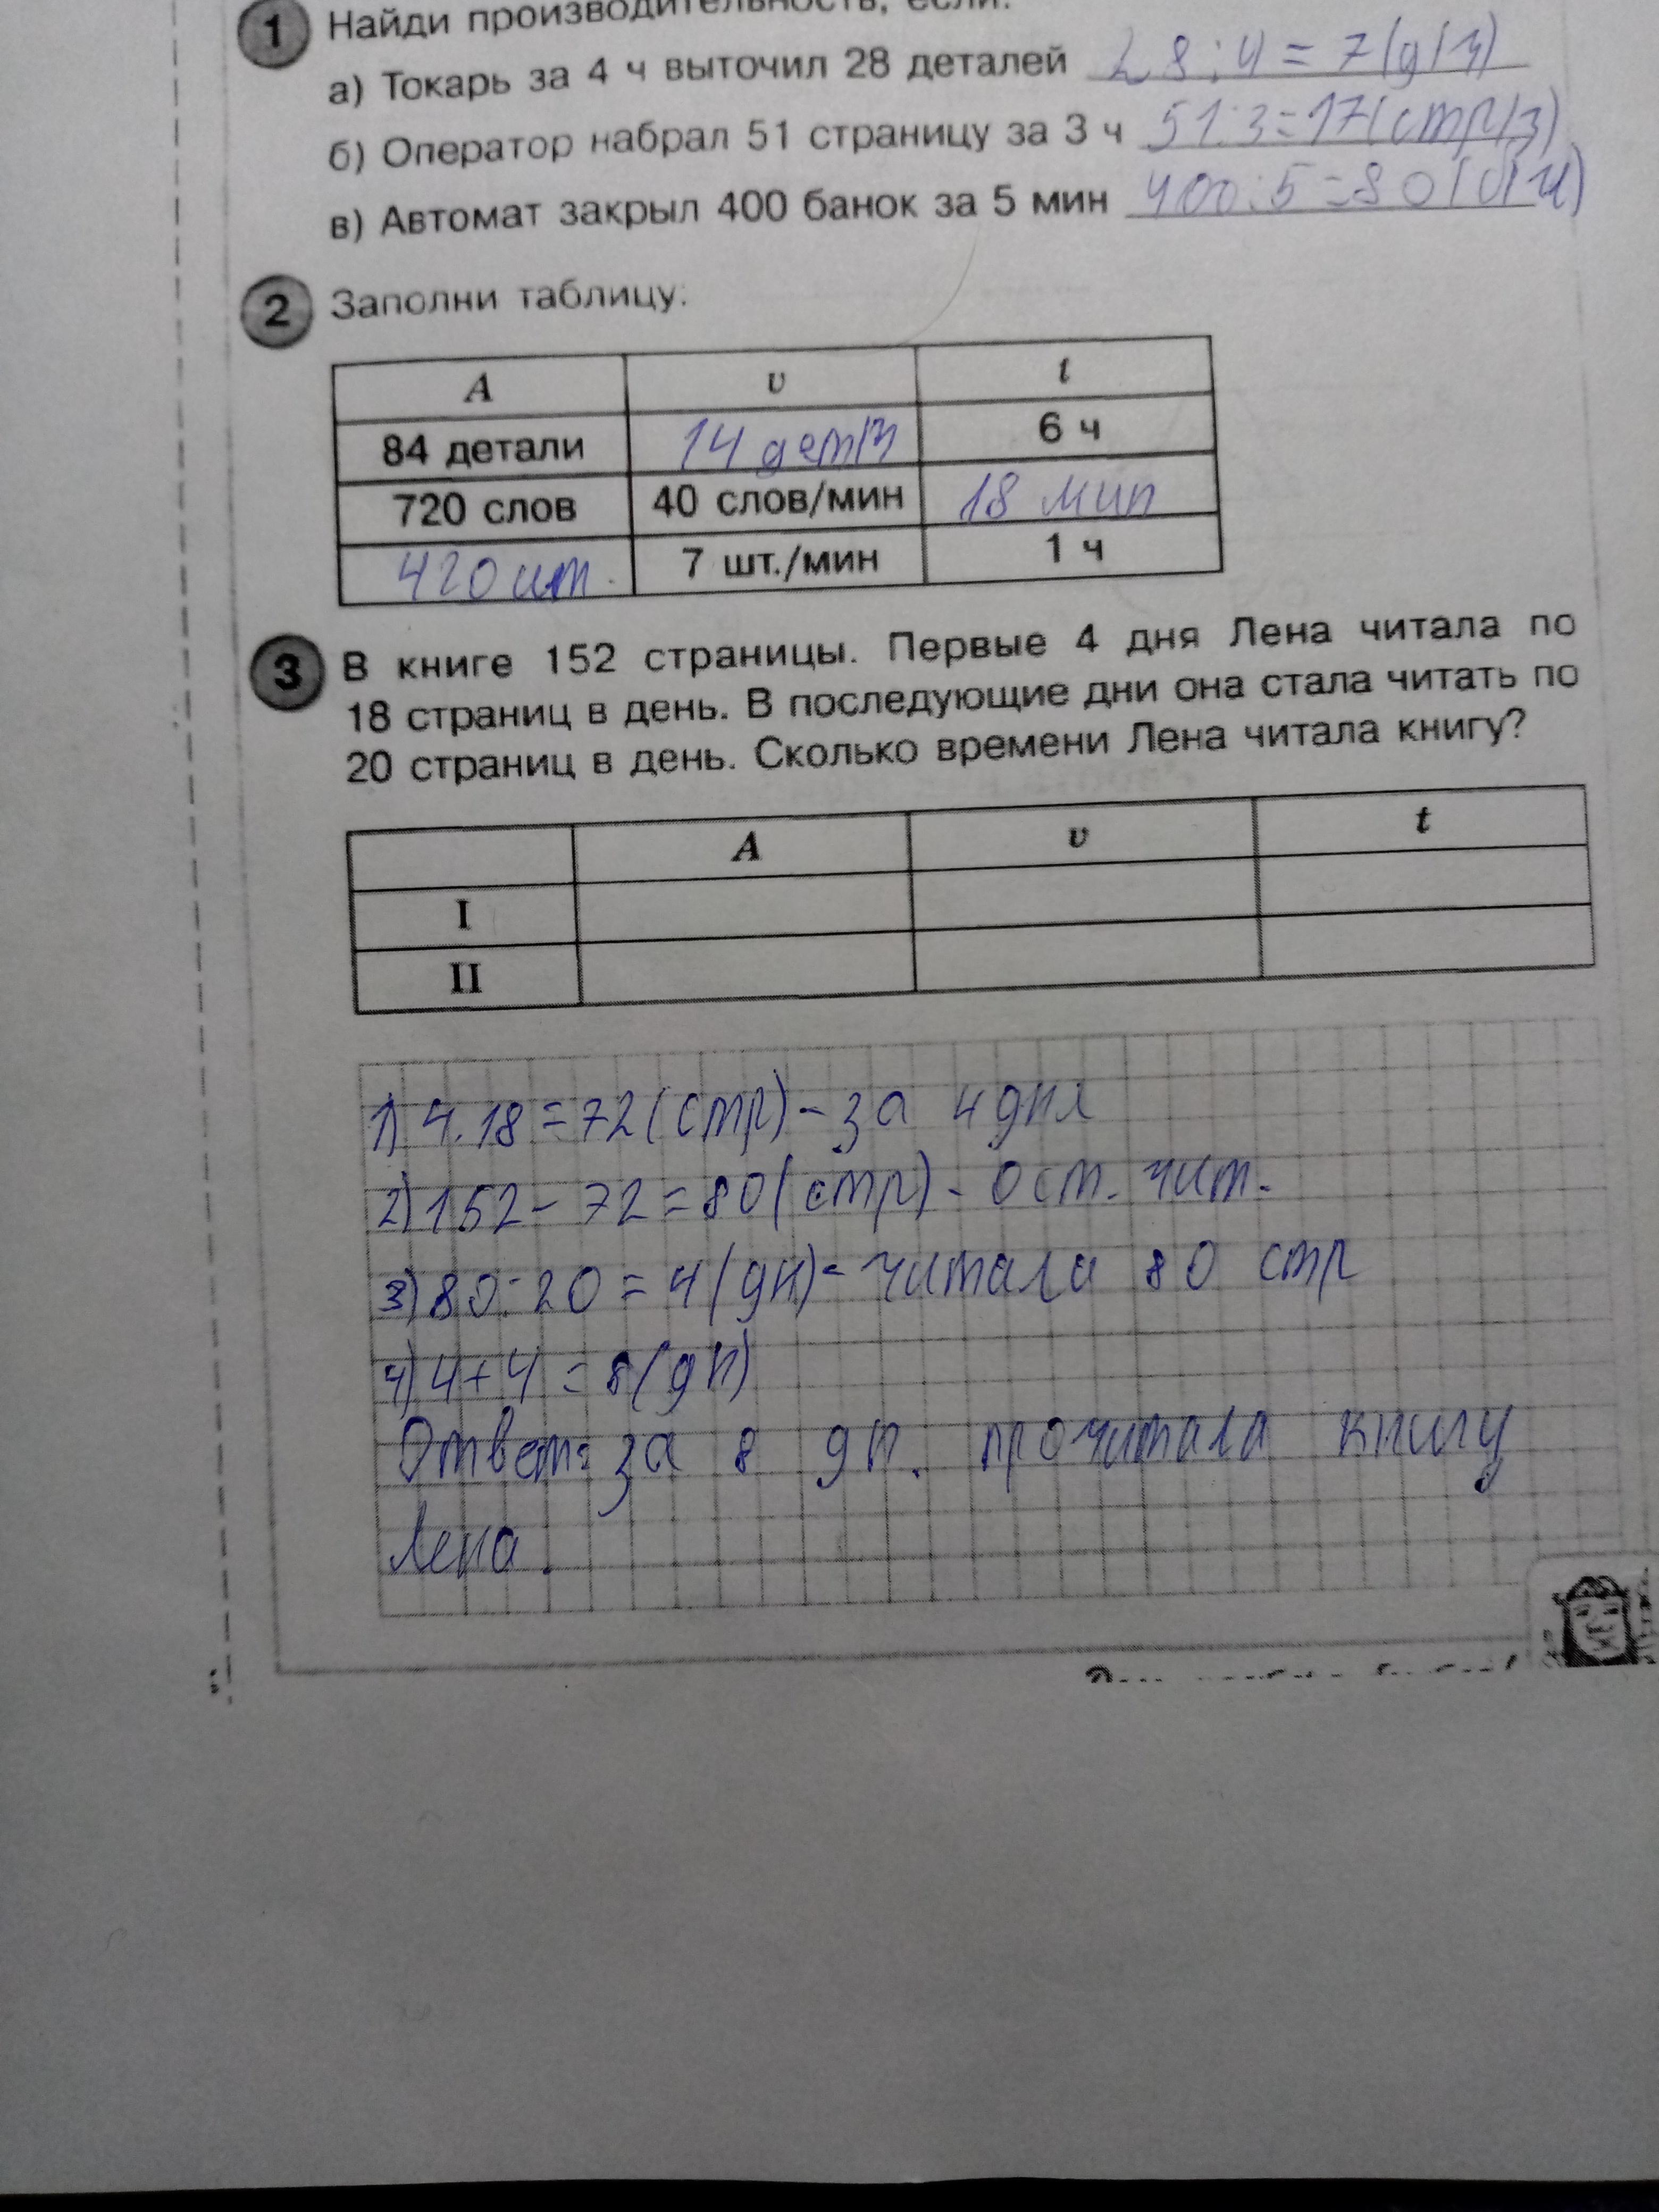 1 Найди производительность, если:
а) Токарь за 4 ч выточил 28 деталей 28:4=7(д/ч)
б) Оператор набрал 51 страницу за 3 ч 51:3=17(стр/ч)
в) Автомат закрыл 400 банок за 5 мин 400:5=80(б/м)
2 Заполни таблицу:
A v t
84 детали 14 дет/ч 6 ч
720 слов 40 слов/мин 18 мин
420 шт. 7 шт./мин 1 ч
3 В книге 152 страницы. Первые 4 дня Лена читала по
18 страниц в день. В последующие дни она стала читать по
20 страниц в день. Сколько времени Лена читала книгу?
A v t
I
II
1) 4·18=72(стр)-за 4 дня
2) 152-72=80(стр)-ост. чит.
3) 80:20=4(дн)-читала 80 стр
4) 4+4=8(дн)
Ответ: за 8 дн. прочитала книгу
Лена.